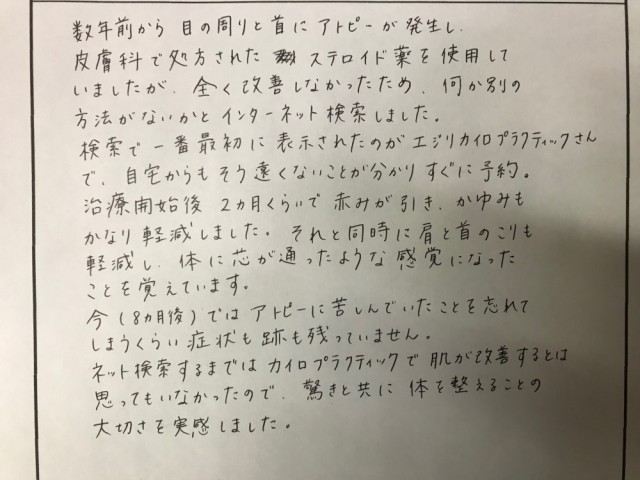 数年前から 目の周りと首に アトピーが 発生し、
皮膚科で処方された ステロイド薬を使用して
いましたが、全く改善しなかったため、何か別の
方法がないかと インターネット検索しました。
検索で一番最初に表示されたのが エジリカイロプラクティックさん
で、自宅からもそう遠くないことが分かり すぐに予約。
治療開始後 2ヵ月くらいで 赤みが引き、かゆみも
かなり軽減しました。それと同時に肩と首のこりも
軽減し、体に芯が通ったような感覚になった
ことを覚えています。
今(8ヵ月後)では アトピーに苦しんでいたことを忘れて
しまうくらい 症状も跡も残っていません。
ネット検索するまでは カイロプラクティックで 肌が改善するとは
思ってもいなかったので、驚きと共に 体を整えることの
大切さを実感しました。